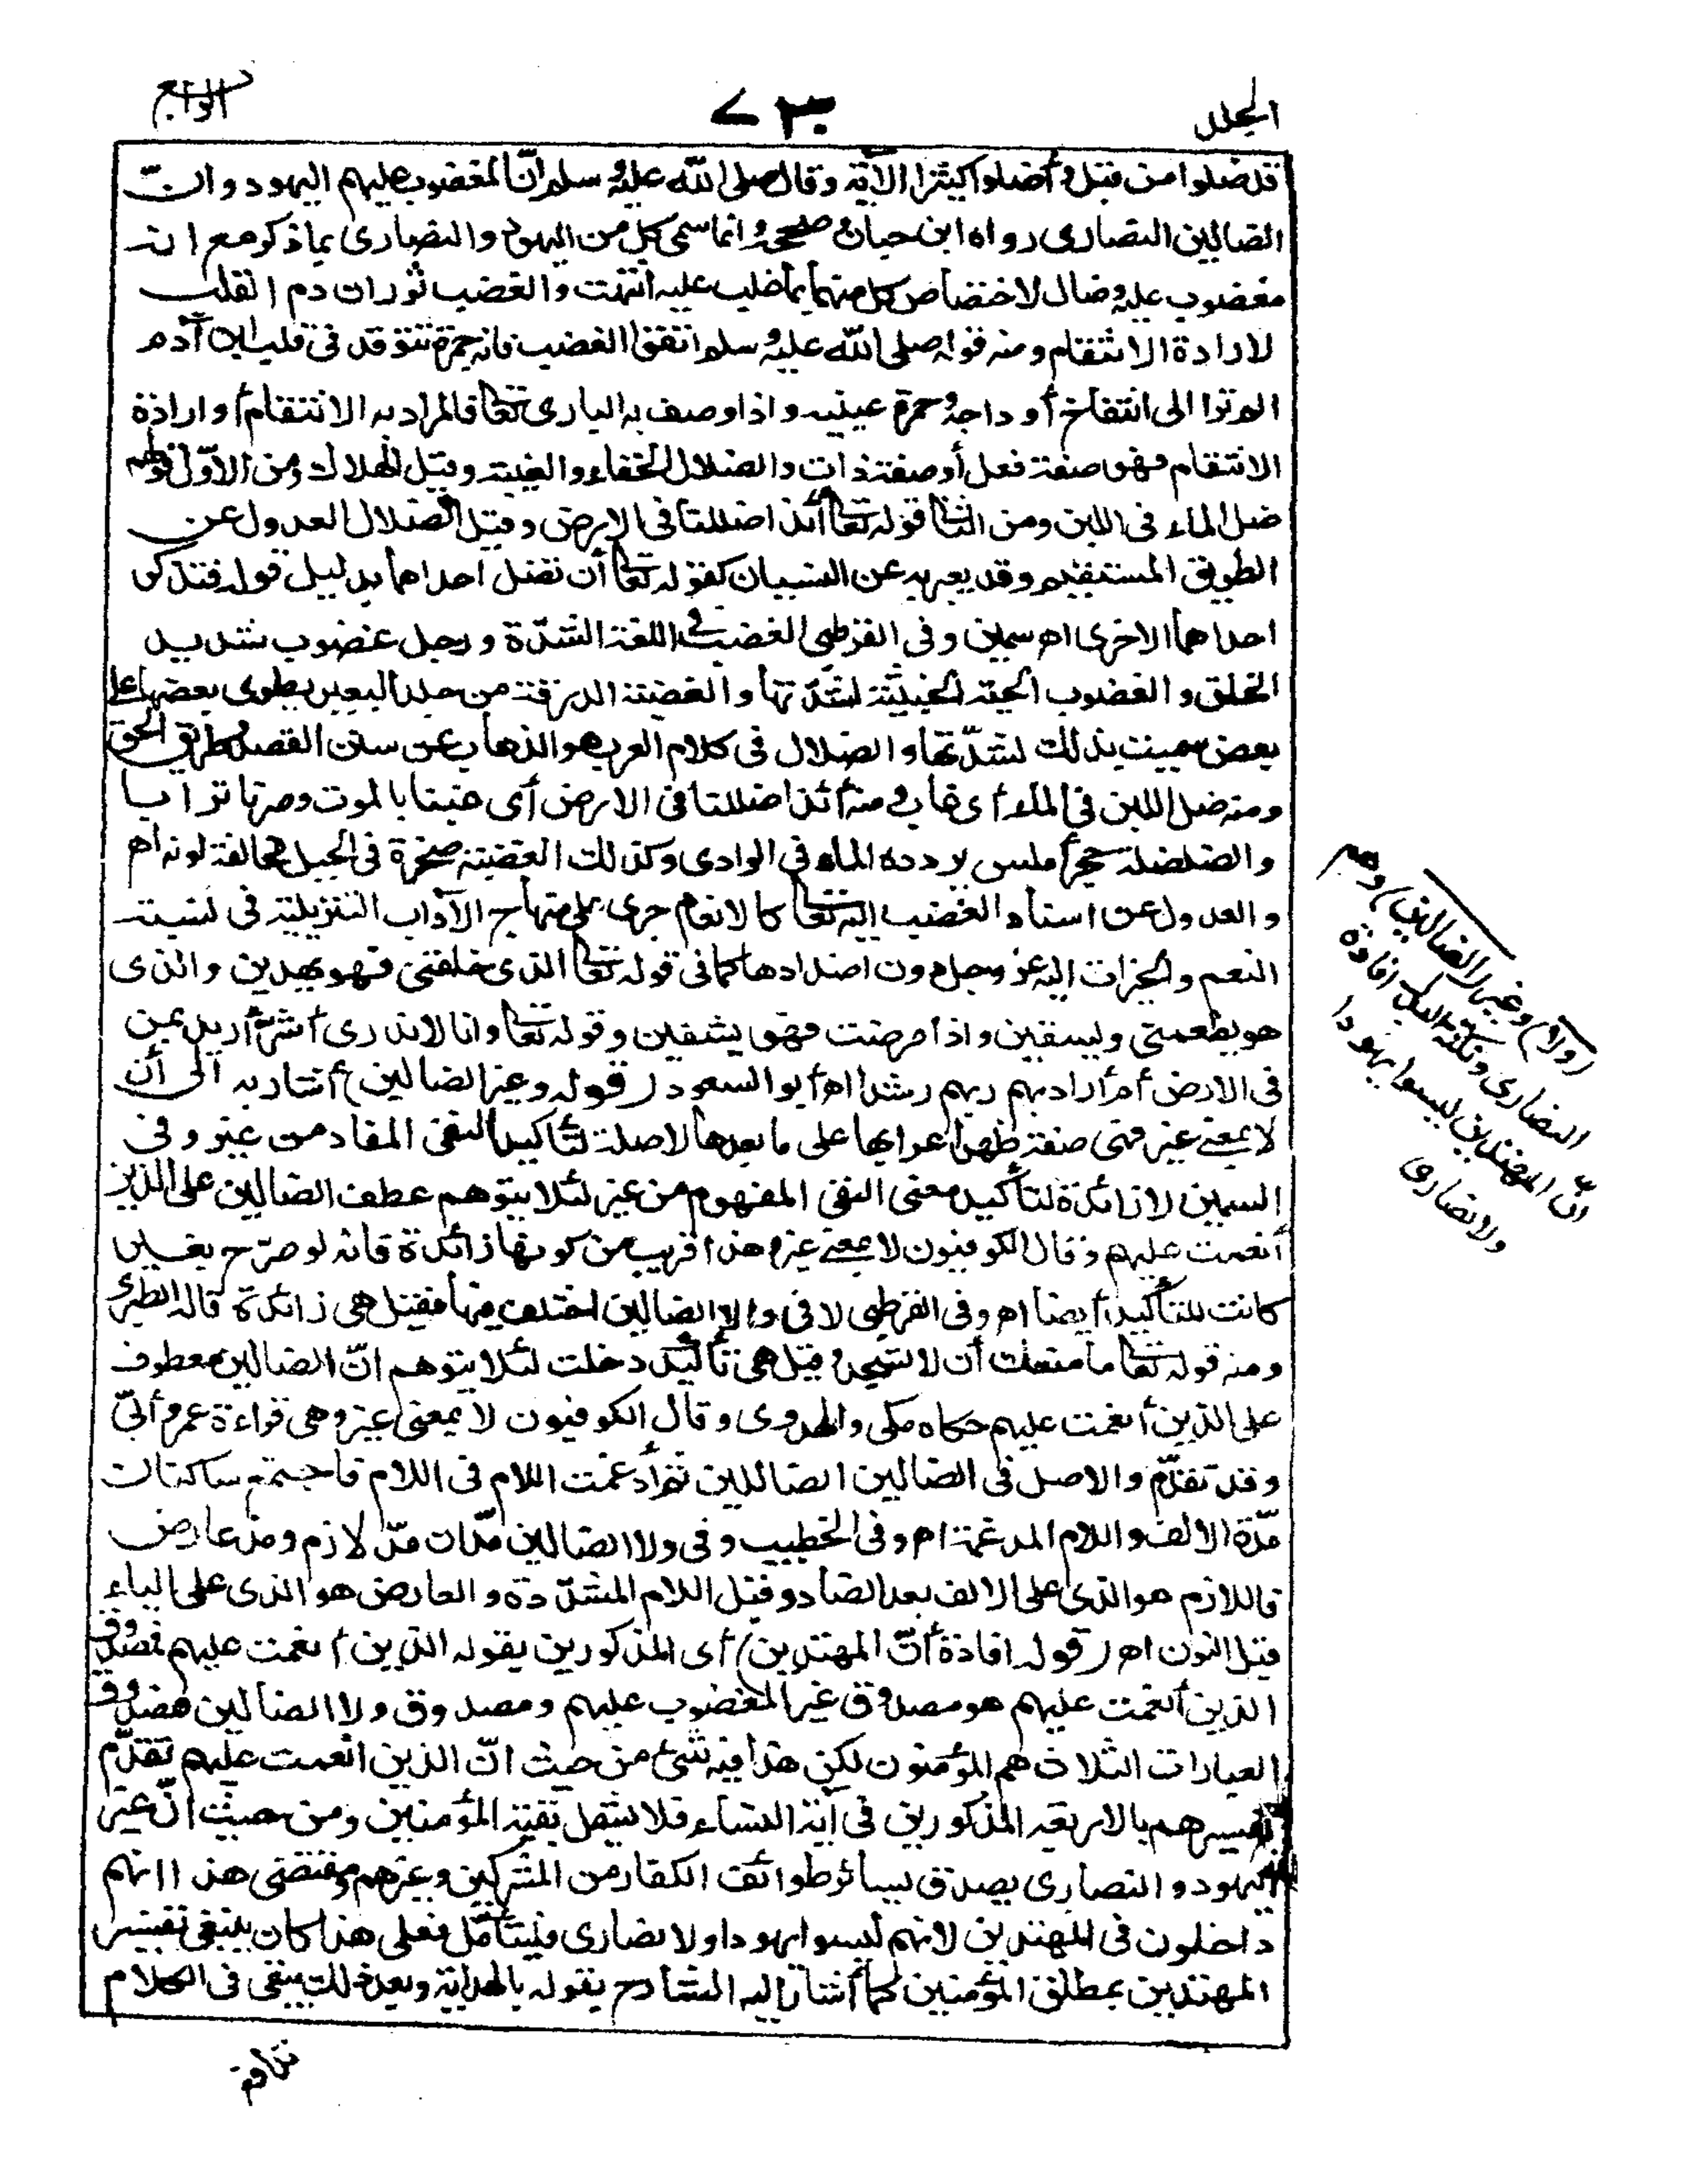 الجلد
٧٣٠
الرابع
قد ضلوا من قبل وأضلوا كثيرا الآية وقال صلى الله عليه وسلم ان المغضوب عليهم اليهود وان
الضالين النصارى رواه ابن حبان وصححه وانما سمى كل من اليهود والنصارى بما ذكر مع انه
مغضوب عليه وضال لاختصاص كل منهما بما غلب عليه انتهت والغضب ثوران دم القلب
لارادة الانتقام ومنه قوله صلى الله عليه وسلم اتقوا الغضب فانه جمرة تتوقد فى قلب ابن آدم
الم تروا الى انتفاخ أوداجه وحمرة عينيه واذا وصف به البارى تعالى فالمراد به الانتقام أو ارادة
الانتقام فهو صفة فعل أو صفة ذات والضلال الخفاء والغيبة وقيل الهلاك ومن الاوّل قولهم
ضل الماء فى اللبن ومن الثانى قوله تعالى أئذا ضللنا فى الارض وقيل الضلال العدول عن
الطريق المستقيم وقد يعبر به عن النسيان كقوله تعالى أن تضل احداهما بدليل قوله فتذكر
احداهما الاخرى اه سمين وفى القرطبى الغضب فى اللغة الشدّة ورجل غضوب شديد
الخلق والغضوب الحية الخبيثة لشدّتها والغضبة الدرقة من جلد البعير يطوى بعضها على
بعض سميت بذلك لشدّتها والضلال فى كلام العرب هو الذهاب عن سنن القصد وطريق الحق
ومنه ضل اللبن فى الماء أى غاب ومنه أئذا ضللنا فى الارض أى غبنا بالموت وصرنا ترابا
والضلضلة حجر أملس يردده الماء فى الوادى وكذلك الغضبة صخرة فى الجبل مخالفة لونه اه
والعدول عن اسناد الغضب اليه تعالى كالانعام جرى على منهاج الآداب التنزيلية فى نسبة
النعم والخيرات اليه عز وجل دون اضدادها كما فى قوله تعالى الذى خلقنى فهو يهدين والذى
هو يطعمنى ويسقين واذا مرضت فهو يشفين وقوله تعالى وانا لا ندرى أشر أريد بمن
فى الارض أم أراد بهم ربهم رشدا اه أبو السعود (قوله وغير الضالين) أشار به الى أن
لا بمعنى غير فهى صفة ظهر اعرابها على ما بعدها لا صلة لتأكيد النفى المفاد من غير وفى
السمين لا زائدة لتأكيد معنى النفى المفهوم من غير لئلا يتوهم عطف الضالين على الذين
أنعمت عليهم وقال الكوفيون لا بمعنى غير وهذا قريب من كونها زائدة فانه لو صرّح بغير
كانت للتأكيد أيضا اه وفى القرطبى لا فى ولا الضالين اختلف فيها فقيل هى زائدة قاله الطبرى
ومنه قوله تعالى ما منعك أن لا تسجد وقيل هى تأكيد دخلت لئلا يتوهم انّ الضالين معطوف
على الذين أنعمت عليهم حكاه مكى والمهدوى وقال الكوفيون لا بمعنى غير وهى قراءة عمر وأبىّ
وقد تقدّم والاصل فى الضالين الضاللين ثم أدغمت اللام فى اللام فاجتمع ساكنان
مدّة الالف واللام المدغمة اه وفى الخطيب وفى ولا الضالين مدّان مدّ لازم ومد عارض
فاللازم هو الذى على الالف بعد الضاد وقبل اللام المشدّدة والعارض هو الذى على الياء
قبل النون اه (قوله افادة أنّ المهتدين) أى المذكورين بقوله الذين أنعمت عليهم فصدوق
الذين أنعمت عليهم هو مصدوق غير المغضوب عليهم ومصدوق ولا الضالين فمصدوق
العبارات الثلاث هم المؤمنون لكن هذا فيه شئ من حيث انّ الذين أنعمت عليهم تقدّم
تفسيرهم بالاربعة المذكورين فى آية النساء فلا يشمل بقية المؤمنين ومن حيث انّ غير
اليهود والنصارى يصدق بسائر طوائف الكفار من المشركين وغيرهم ومقتضى هذا انهم
داخلون فى المهتدين لانهم ليسوا يهودا ولا نصارى فليتأمّل فعلى هذا كان ينبغى تفسير
المهتدين بمطلق المؤمنين كما أشار اليه الشارح بقوله بالهداية وبعد ذلك يبقى فى الكلام
(ولا) وغير (الضالين) وهم
النصارى ونكتة البدل افادة
انّ المهتدين ليسوا يهودا
ولا نصارى